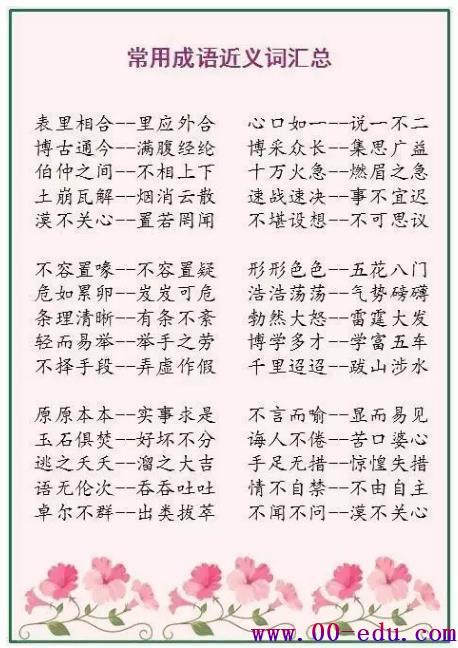 常用成语近义词汇总
表里相合--里应外合 心口如一--说一不二
博古通今--满腹经纶 博采众长--集思广益
伯仲之间--不相上下 十万火急--燃眉之急
土崩瓦解--烟消云散 速战速决--事不宜迟
漠不关心--置若罔闻 不堪设想--不可思议
不容置喙--不容置疑 形形色色--五花八门
危如累卵--发发可危 浩浩荡荡--气势磅礴
条理清晰--有条不紊 勃然大怒--雷霆大发
轻而易举--举手之劳 博学多才--学富五车
不择手段--弄虚作假 千里迢迢--跋山涉水
原原本本--实事求是 不言而喻--显而易见
玉石俱焚--好坏不分 诲人不倦--苦口婆心
逃之夭夭--溜之大吉 手足无措--惊惶失措
语无伦次--吞吞吐吐 情不自禁--不由自主
卓尔不群--出类拔萃 不闻不问--漠不关心
www.00-edu.com